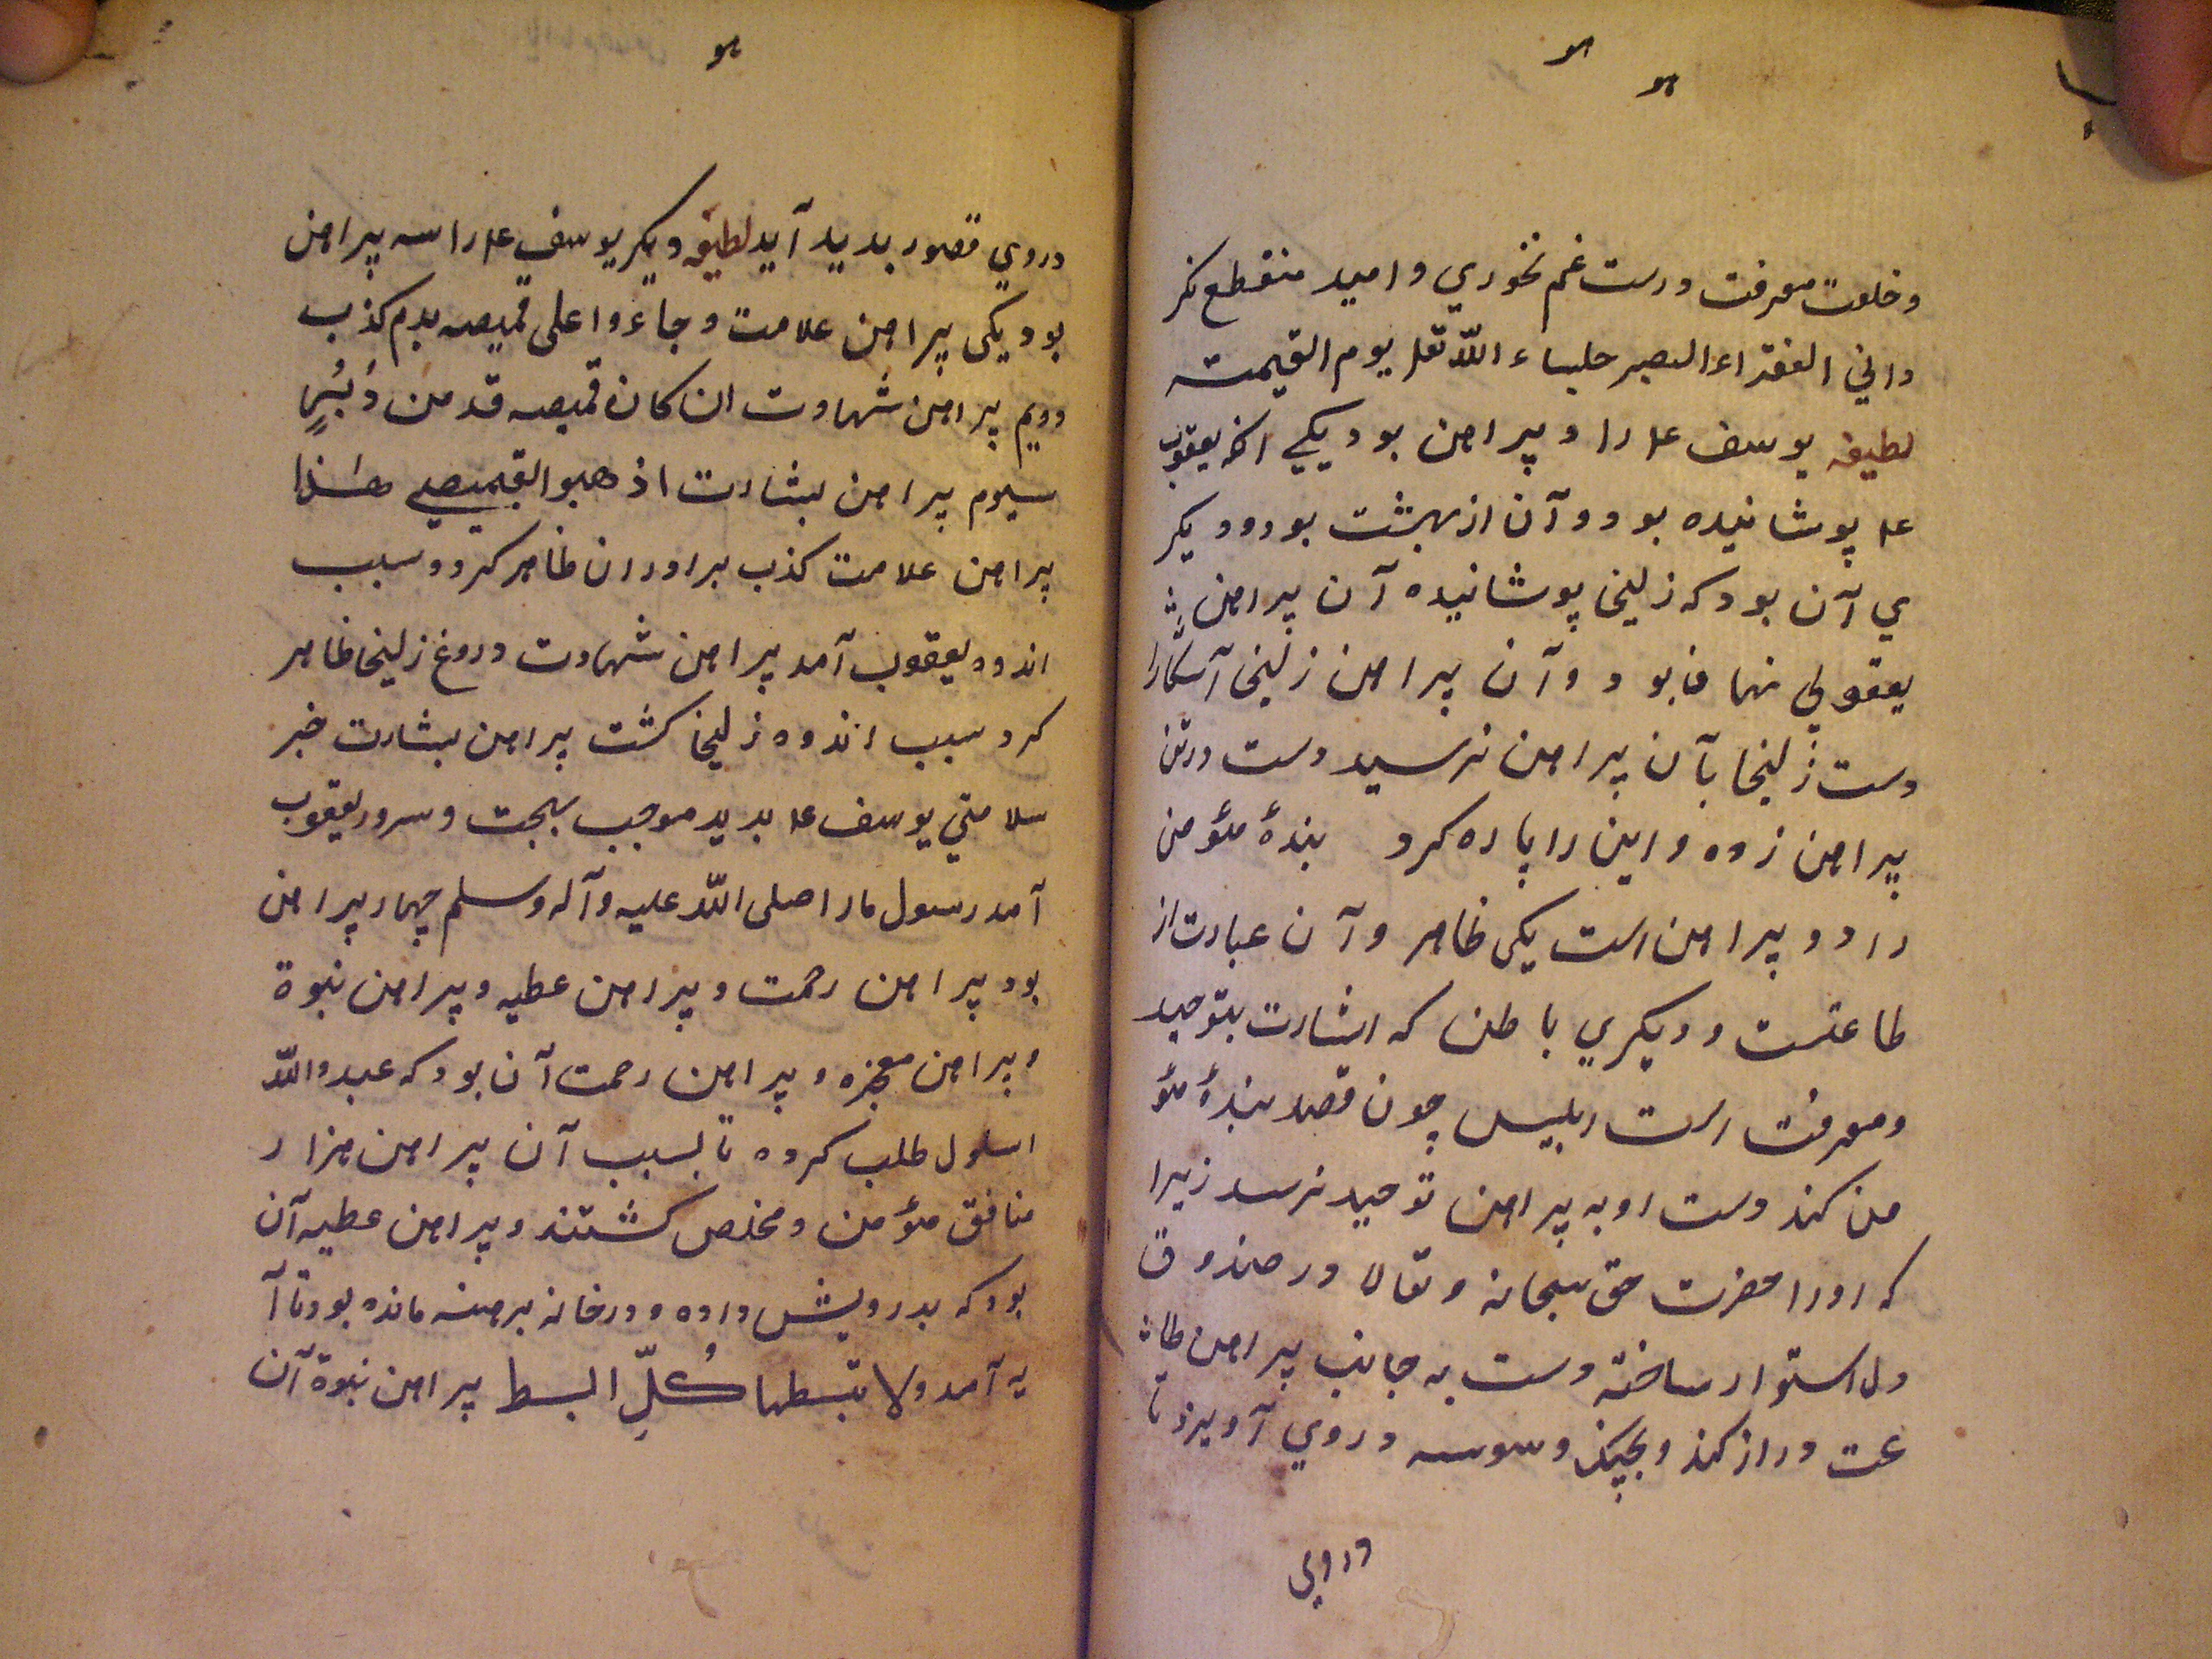 هو
هو
وخلعت معرفت درست غم نخوري واميد منقطع نكر
داني الفقراء الصبر جلساء الله تعلى يوم القيمته
لطيفه يوسف عل را دو پيراهن بود يكي آنكه يعقوب
عل پوشانيده بود وآن از بهشت بود وديكر
ي آن بود كه زليخا پوشانيده آن پيراهن
يعقوبي نهان بود وآن پيراهن زليخى آشكارا
دست زليخا بآن پيراهن نرسيد دست درين
پيراهن زده واين را پاره كرد بندۀ مؤمن
را دو پيراهن است يكى ظاهر وآن عبارت از
طاعتست وديكري باطن كه اشارت بتوحيد
ومعرفت است ابليس چون قصد بندۀ مؤ
من كند دست او به پيراهن توحيد نرسد زيرا
كه اورا حضرت حق سبحانه وتعالا در صندوق
دل استوار ساخته دست به جانب پيراهن طا
عت دراز كند وبچنك وسوسه دروي آويزد تا
دروي
هو
دروي قصور بديد آيد لطيفه ديكر يوسف عل را سه پيراهن
بود يكى پيراهن علامت وجاءوا على قميصه بدم كذب
دويم پيراهن شهادت ان كان قميصه قد من دُبُرٍ
سيوم پيراهن بشارت اذهبوا بقميصي هذا
پيراهن علامت كذب برادران ظاهر كرد وسبب
اندوه يعقوب آمد پيراهن شهادت دروغ زليخا ظاهر
كرد سبب اندوه زليخا كشت پيراهن بشارت خبر
سلامتي يوسف عل بديد موجب بهجت وسرور يعقوب
آمد رسول مارا صلى الله عليه وآله وسلم چهار پيراهن
بود پيراهن رحمت وپيراهن عطيه وپيراهن نبوة
وپيراهن معجزه وپيراهن رحمت آن بود كه عبدو الله
اسلول طلب كرده تا بسبب آن پيراهن هزار
منافق مؤمن ومخلص كشتند وپيراهن عطيه آن
بود كه بدرويش داده ودرخانه برهنه مانده بود تا آ
يه آمد ولا تبسطها كُلِّ البسط پيراهن نبوة آن